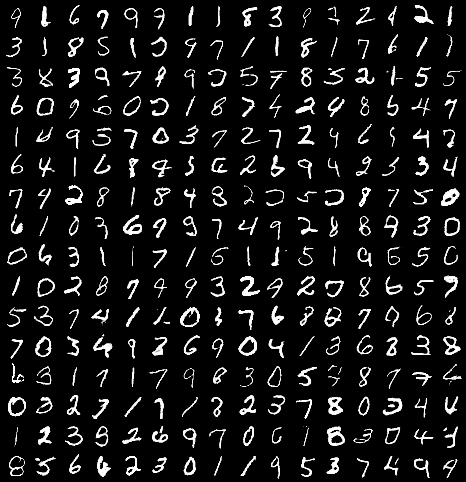 9 1 6 7 9 7 1 1 8 3 9 7 2 4 2 1
3 1 8 5 1 0 9 7 1 1 8 1 7 6 1 1
3 8 3 9 7 9 9 0 5 7 8 5 2 1 5 5
6 0 9 6 0 0 1 8 7 4 2 9 8 5 4 7
1 4 9 5 7 0 3 7 2 7 2 9 6 5 9 7
6 4 1 6 8 4 5 6 2 8 9 4 2 3 3 4
7 9 2 8 1 8 4 8 2 0 5 0 8 7 5 0
6 1 0 3 6 9 9 7 4 9 2 8 8 9 3 0
0 6 3 1 1 7 1 6 1 1 5 1 9 6 5 0
1 0 2 8 7 4 9 3 2 9 2 0 8 6 5 9
5 3 7 4 1 1 0 3 7 6 8 8 7 9 6 8
7 0 3 6 9 2 6 9 0 4 1 3 6 3 3 8
6 3 1 7 1 7 9 8 3 0 5 9 8 7 7 6
0 3 2 7 1 7 1 8 2 3 7 8 0 3 4 4
1 2 3 5 2 6 9 7 0 6 1 8 3 0 4 9
8 5 6 6 2 3 0 1 1 9 5 3 7 4 9 9